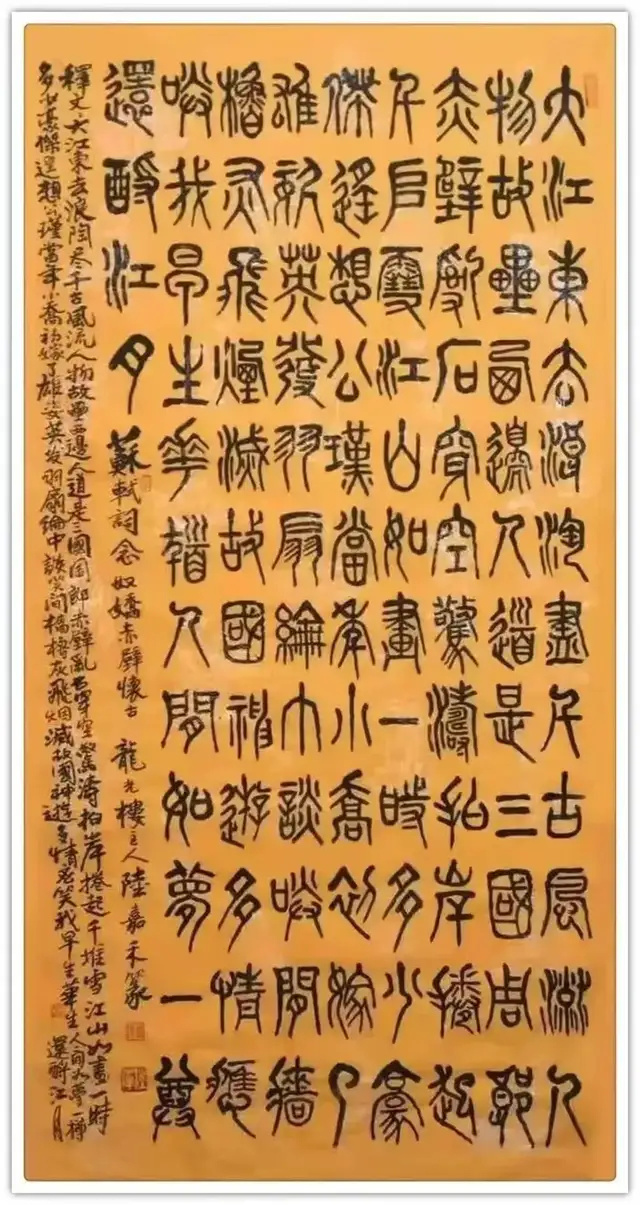 大江東去浪淘盡千古風流人
物故壘西邊人道是三國周郎
赤壁亂石穿空驚濤拍岸捲起
千堆雪江山如畫一時多少豪
傑遥想公瑾當年小喬初嫁了
雄姿英發羽扇綸巾談笑間檣
櫓灰飛煙滅故國神遊多情應
笑我早生華髮人間如夢一尊
還酹江月 蘇軾詞念奴嬌赤壁懷古 龍光樓主人陸嘉禾篆
釋文大江東去浪陶尽千古風流人物故壘西邊人道是三國周郎赤壁亂石穿空驚濤拍岸捲起千堆雪江山如畫一時
多少豪傑遥想公瑾當年小喬初嫁了雄姿英发羽扇綸中談笑间檣櫓灰飛烟滅故國神遊多情應笑我早生華生人间如夢一樽還酹江月